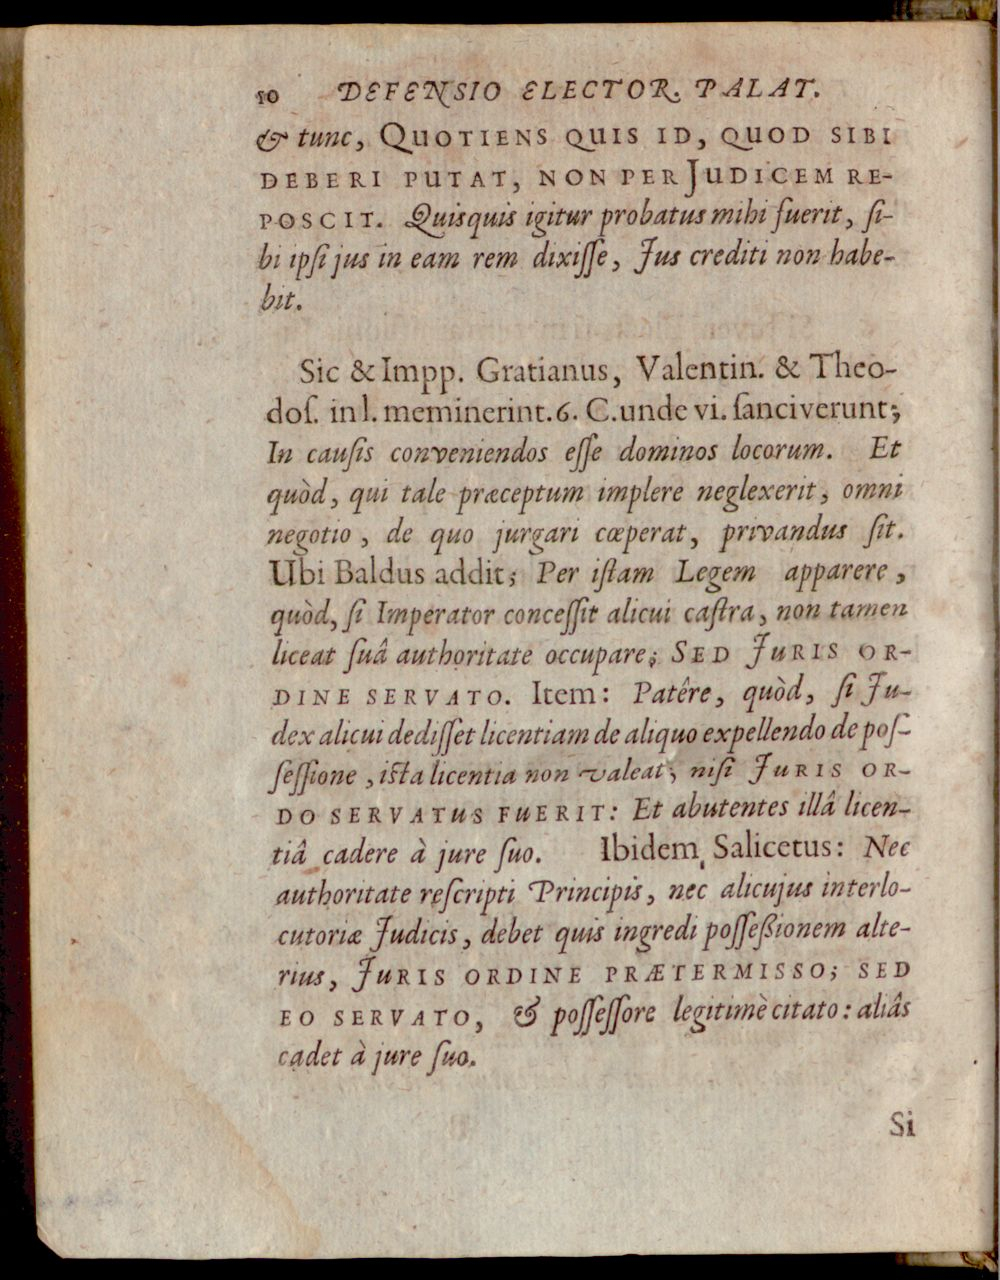 10 DEFENSIO ELECTOR. PALAT.
& tunc, QUOTIENS QUIS ID, QUOD SIBI
DEBERI PUTAT, NON PER JUDICEM RE-
POSCIT. Quisquis igitur probatus mihi fuerit, ſi-
bi ipſi jus in eam rem dixiſſe, Jus crediti non habe-
bit.
Sic & Impp. Gratianus, Valentin. & Theo-
doſ. in l. meminerint. 6. C. unde vi. ſanciverunt;
In cauſis conveniendos eſſe dominos locorum. Et
quòd, qui tale præceptum implere neglexerit, omni
negotio, de quo jurgari cœperat, privandus ſit.
Ubi Baldus addit; Per iſtam Legem apparere,
quòd, ſi Imperator conceſſit alicui caſtra, non tamen
liceat ſuâ authoritate occupare; SED JURIS OR-
DINE SERVATO. Item: Patêre, quòd, ſi Ju-
dex alicui dediſſet licentiam de aliquo expellendo de poſ-
ſeſſione, iſta licentia non valeat; niſi JURIS OR-
DO SERVATUS FUERIT: Et abutentes illâ licen-
tiâ cadere à jure ſuo. Ibidem Salicetus: Nec
authoritate reſcripti Principis, nec alicujus interlo-
cutoriæ Judicis, debet quis ingredi poſſeßionem alte-
rius, JURIS ORDINE PRÆTERMISSO; SED
EO SERVATO, & poſſeſſore legitimè citato: aliâs
cadet à jure ſuo.
Si